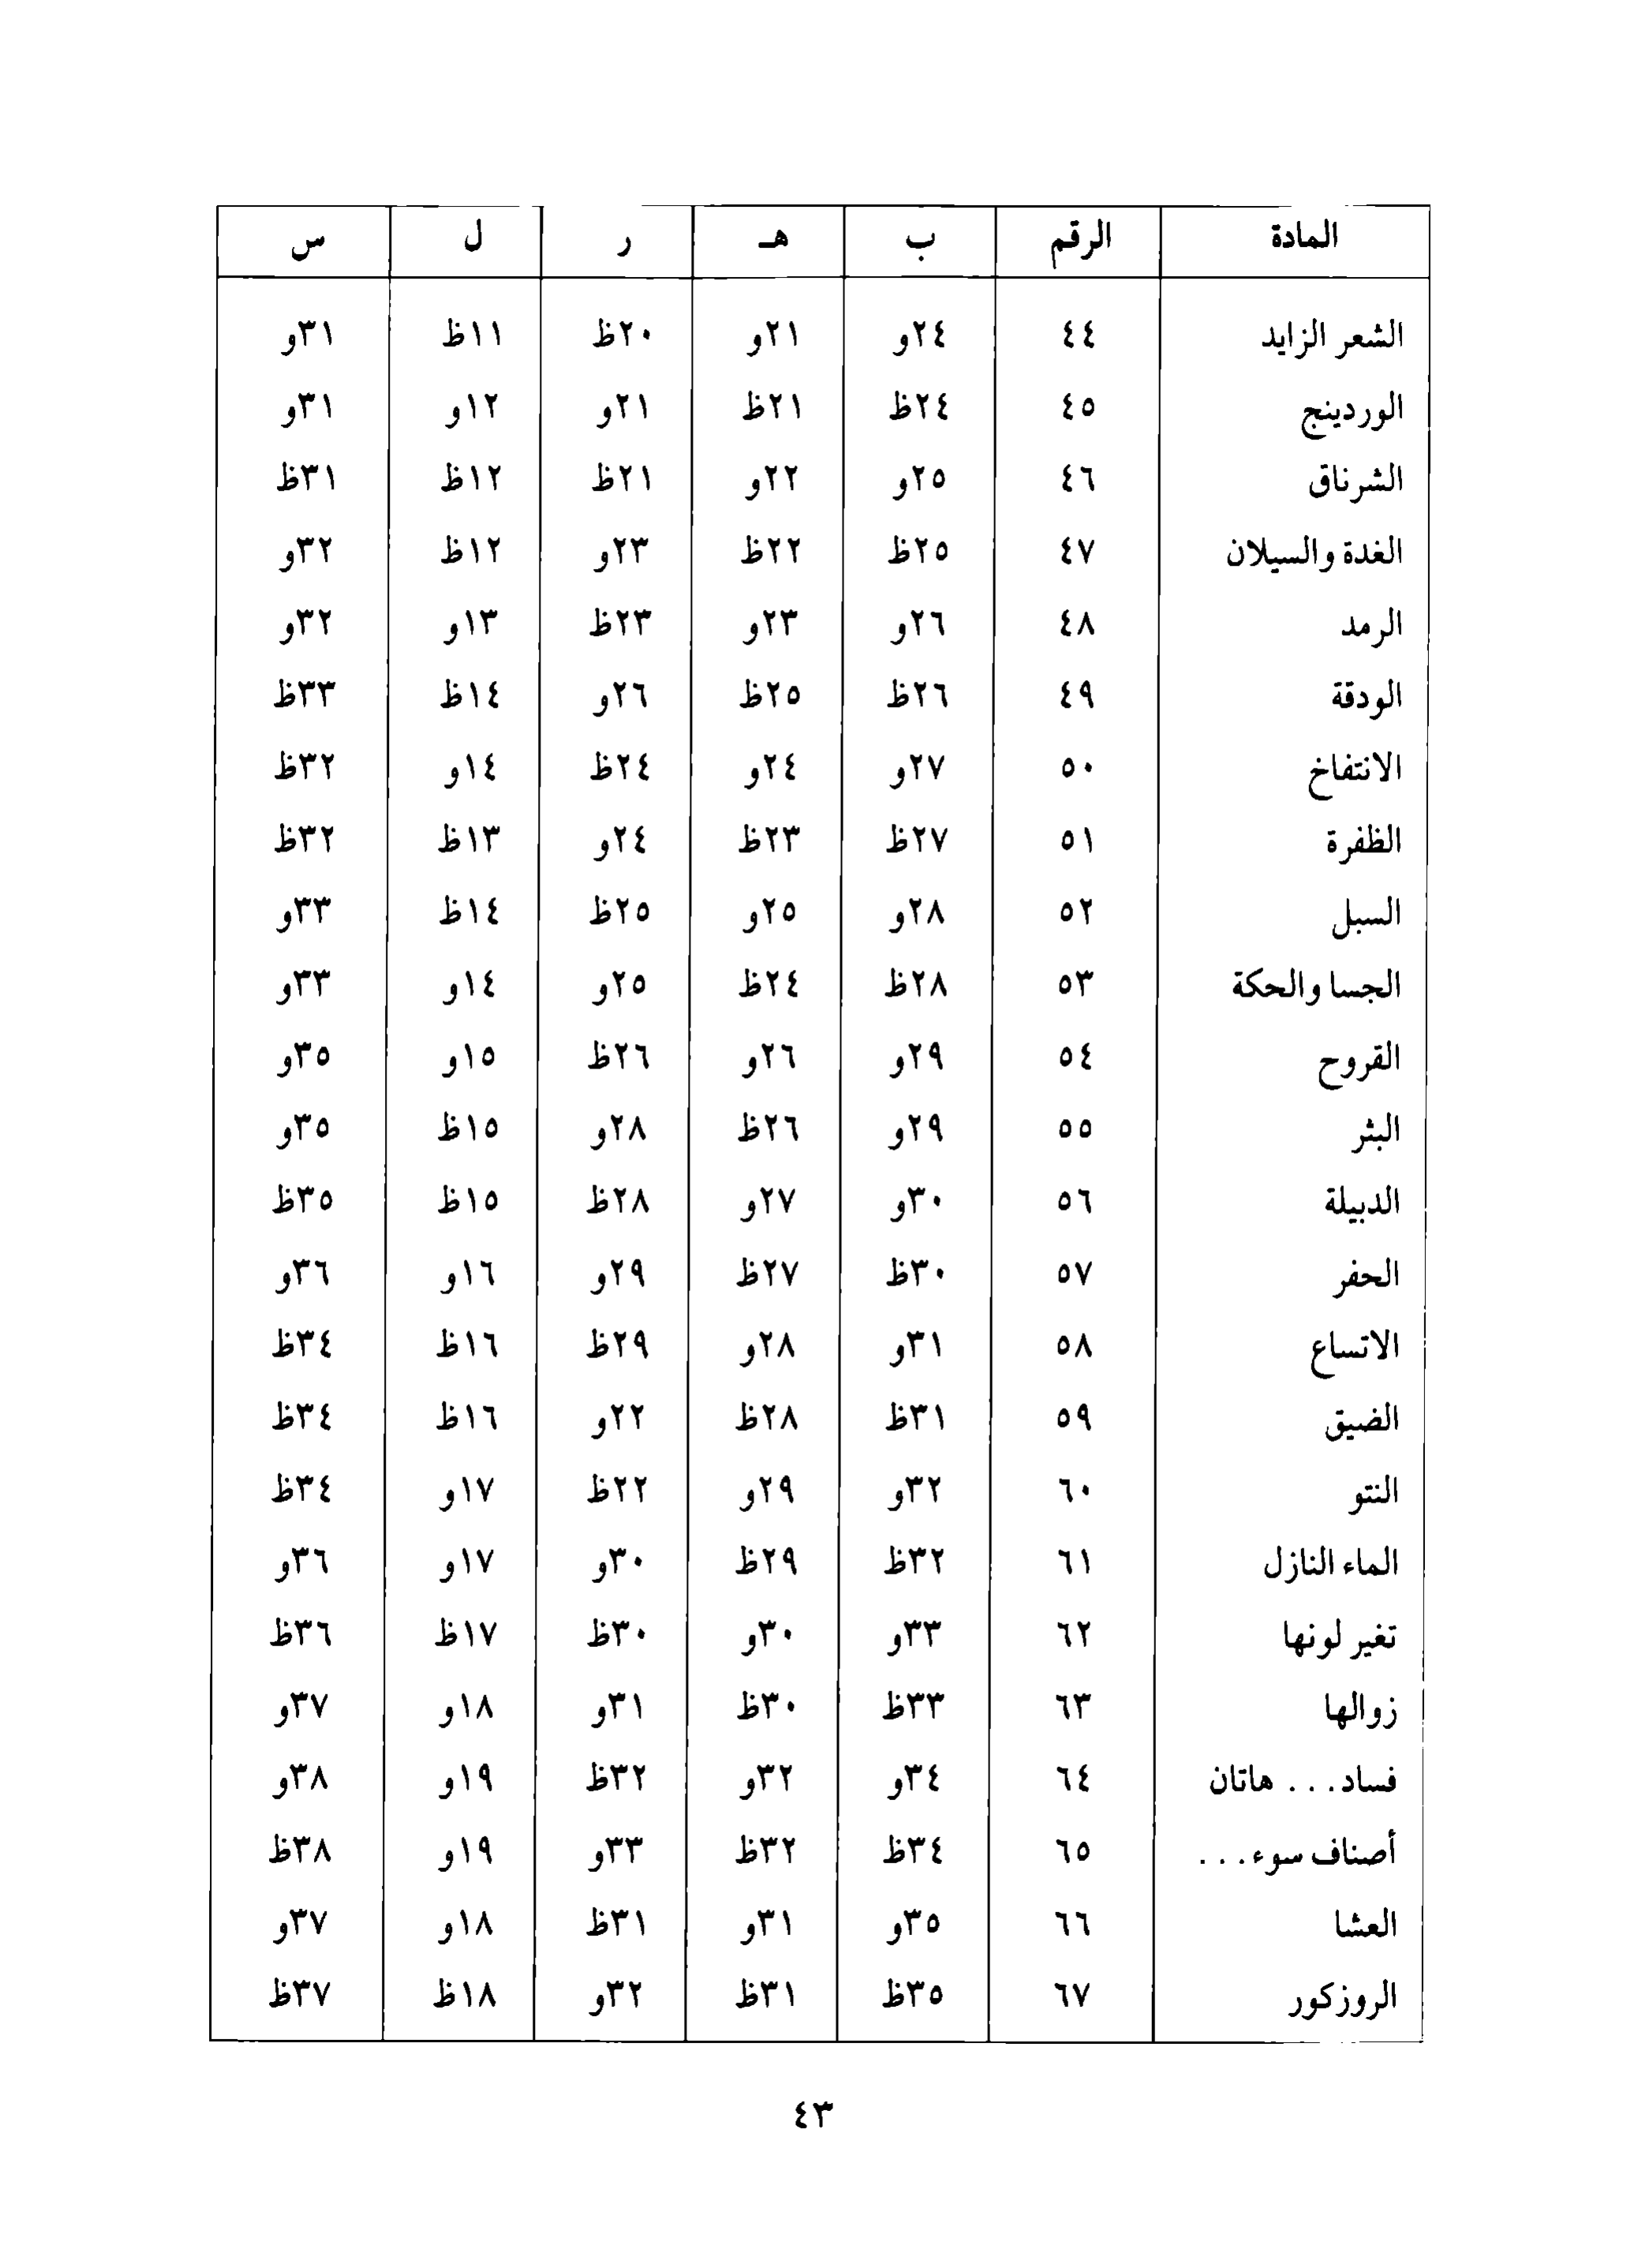 المادة الرقم ب هـ ر ل س
الشعر الزايد ٤٤ ٢٤و ٢١و ٢٠ظ ١١ظ ٣١و
الوردينج ٤٥ ٢٤ظ ٢١ظ ٢١و ١٢و ٣١و
الشرناق ٤٦ ٢٥و ٢٢و ٢١ظ ١٢ظ ٣١ظ
الغدة والسيلان ٤٧ ٢٥ظ ٢٢ظ ٢٣و ١٢ظ ٣٢و
الرمد ٤٨ ٢٦و ٢٣و ٢٣ظ ١٣و ٣٢و
الودقة ٤٩ ٢٦ظ ٢٥ظ ٢٦و ١٤ظ ٣٣ظ
الانتفاخ ٥٠ ٢٧و ٢٤و ٢٤ظ ١٤و ٣٢ظ
الظفرة ٥١ ٢٧ظ ٢٣ظ ٢٤و ١٣ظ ٣٢ظ
السبل ٥٢ ٢٨و ٢٥و ٢٥ظ ١٤ظ ٣٣و
الجسا والحكة ٥٣ ٢٨ظ ٢٤ظ ٢٥و ١٤و ٣٣و
القروح ٥٤ ٢٩و ٢٦و ٢٦ظ ١٥و ٣٥و
البثر ٥٥ ٢٩و ٢٦ظ ٢٨و ١٥ظ ٣٥و
الدبيلة ٥٦ ٣٠و ٢٧و ٢٨ظ ١٥ظ ٣٥ظ
الحفر ٥٧ ٣٠ظ ٢٧ظ ٢٩و ١٦و ٣٦و
الاتساع ٥٨ ٣١و ٢٨و ٢٩ظ ١٦ظ ٣٤ظ
الضيق ٥٩ ٣١ظ ٢٨ظ ٢٢و ١٦ظ ٣٤ظ
النتو ٦٠ ٣٢و ٢٩و ٢٢ظ ١٧و ٣٤ظ
الماء النازل ٦١ ٣٢ظ ٢٩ظ ٣٠و ١٧و ٣٦و
تغير لونها ٦٢ ٣٣و ٣٠و ٣٠ظ ١٧ظ ٣٦ظ
زوالها ٦٣ ٣٣ظ ٣٠ظ ٣١و ١٨و ٣٧و
فساد... هاتان ٦٤ ٣٤و ٣٢و ٣٢ظ ١٩و ٣٨و
أصناف سوء... ٦٥ ٣٤ظ ٣٢ظ ٣٣و ١٩و ٣٨ظ
العشا ٦٦ ٣٥و ٣١و ٣١ظ ١٨و ٣٧و
الروزكور ٦٧ ٣٥ظ ٣١ظ ٣٢و ١٨ظ ٣٧ظ
٤٣